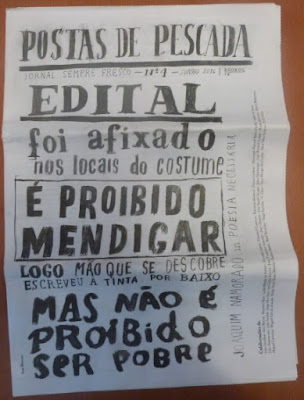 POSTAS DE PESCADA
JORNAL SEMPRE FRESCO — nº1 —
EDITAL
foi afixado
nos locais do costume
É PROIBIDO
MENDIGAR
LOGO MÃO QUE SE DESCOBRE
ESCREVEU A TINTA POR BAIXO
MAS NÃO É
PROIBIDO
SER POBRE
JOAQUIM NAMORADO in POESIA NECESSÁRIA